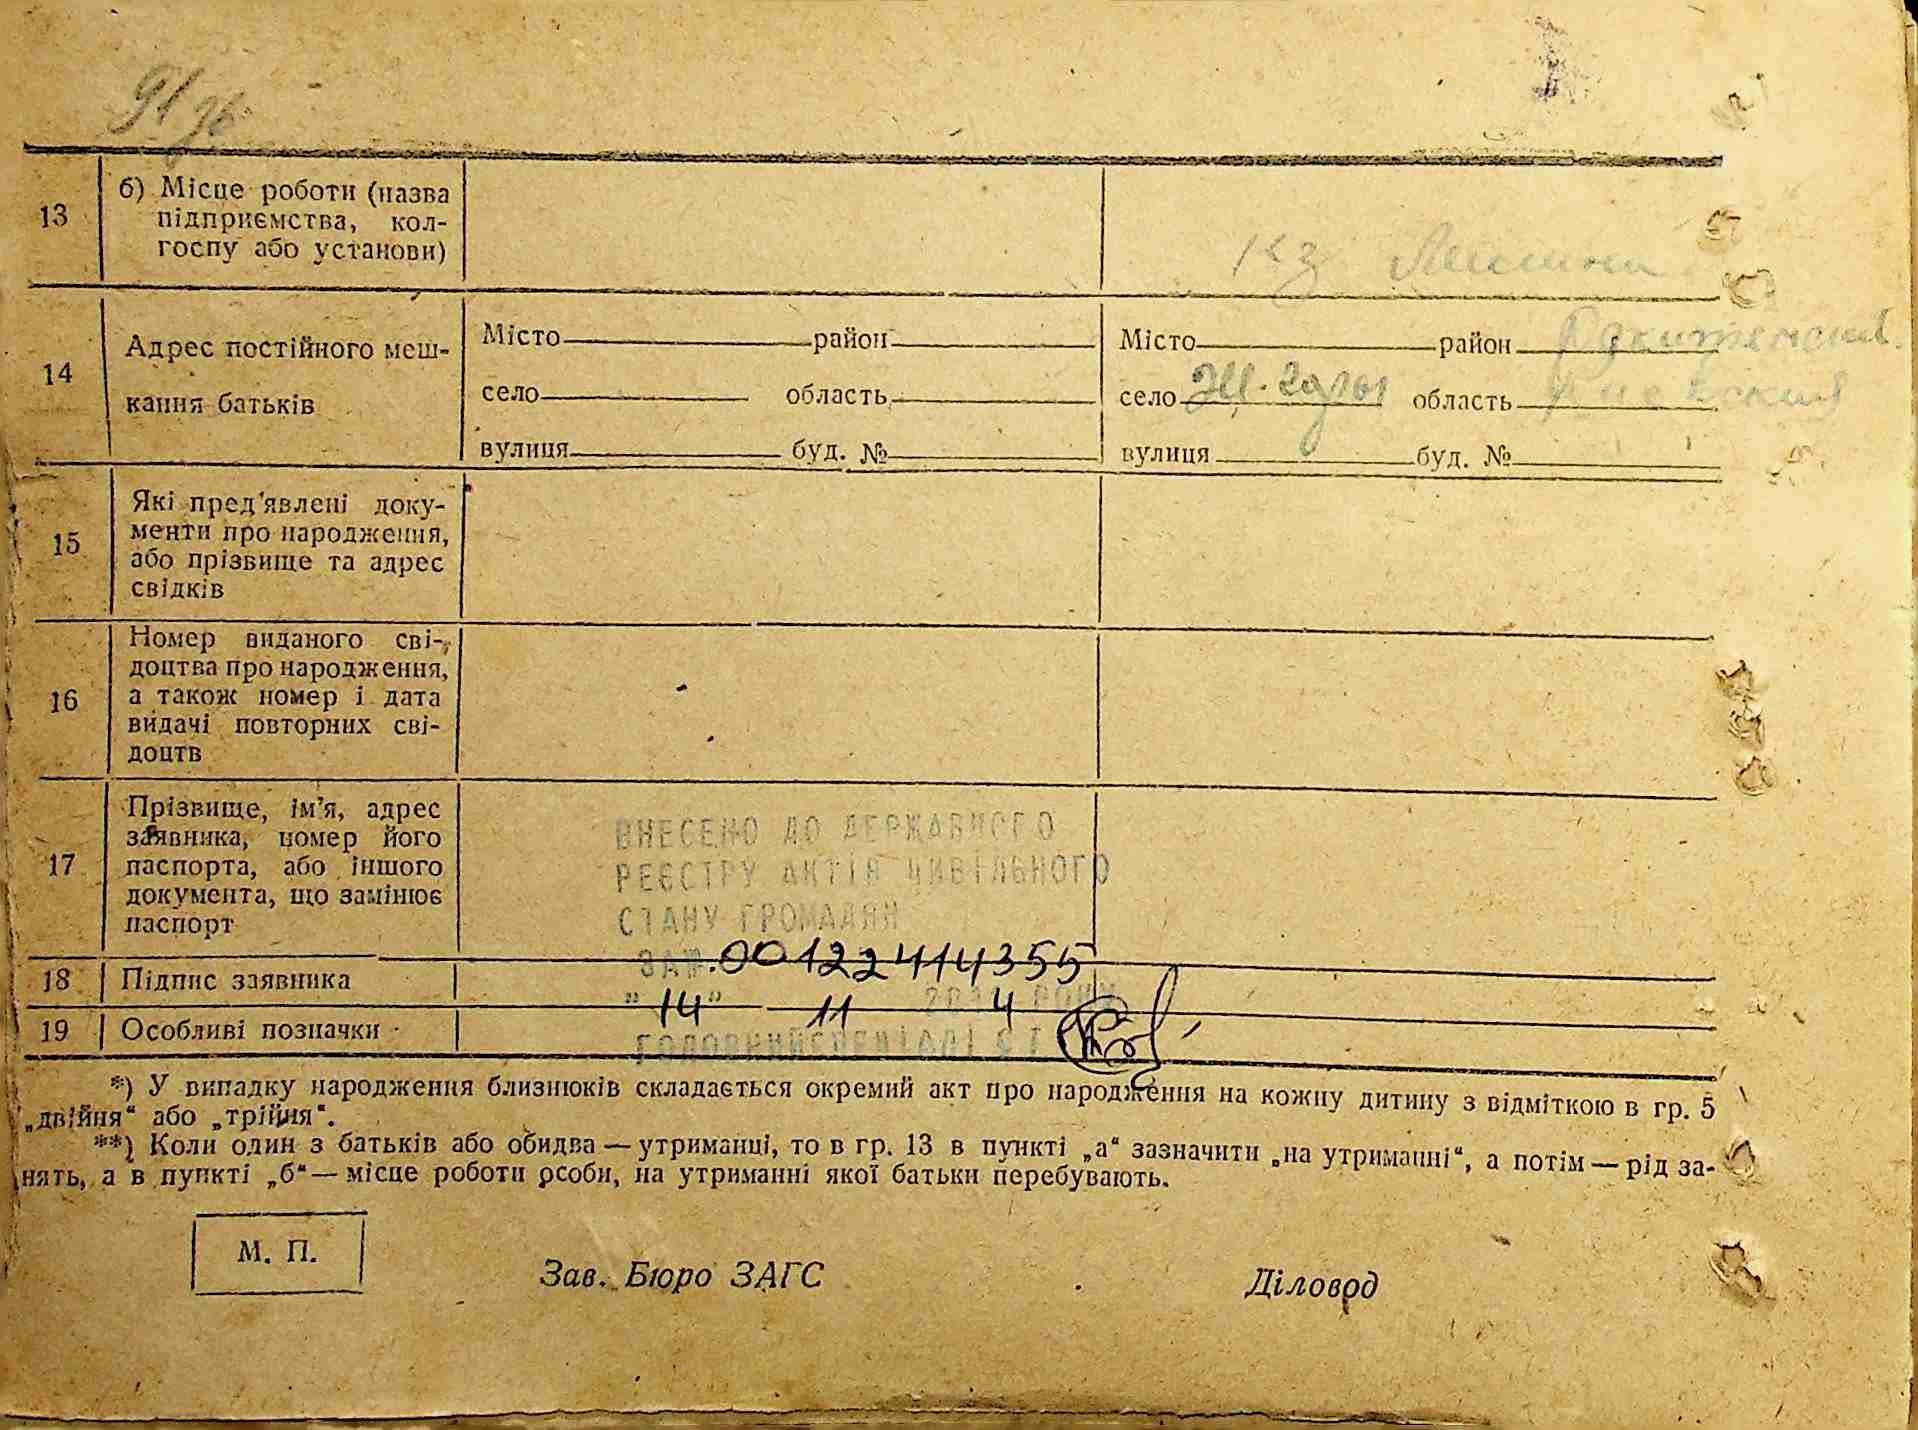 13
б) Місце роботи (назва
підприємства, кол-
госпу або установи)
кз Ленина
14
Адрес постійного меш-
кання батьків
Місто район
село область
вулиця буд. №
Місто район
село область Киевский
вулиця буд. №
15
Які пред'явлені доку-
менти про народження,
або прізвище та адрес
свідків
16
Номер виданого сві-
доцтва про народження,
а також номер і дата
видачі повторних сві-
доцтв
17
Прізвище, ім'я, адрес
заявника, номер його
паспорта, або іншого
документа, що замінює
паспорт
ВНЕСЕНО ДО ДЕРЖАВНОГО
РЕЄСТРУ АКТІВ ЦИВІЛЬНОГО
СТАНУ ГРОМАДЯН
ЗА №.00122414355
18 Підпис заявника
"14" 11 2014 РОКУ
19 Особливі позначки
ГОЛОВНИЙ СПЕЦІАЛІСТ
*) У випадку народження близнюків складається окремий акт про народження на кожну дитину з відміткою в гр. 5
„двійня“ або „трійня“.
**) Коли один з батьків або обидва — утриманці, то в гр. 13 в пункті „а“ зазначити „на утриманні“, а потім — рід за-
нять, а в пункті „б“ — місце роботи особи, на утриманні якої батьки перебувають.
М. П.
Зав. Бюро ЗАГС
Діловод